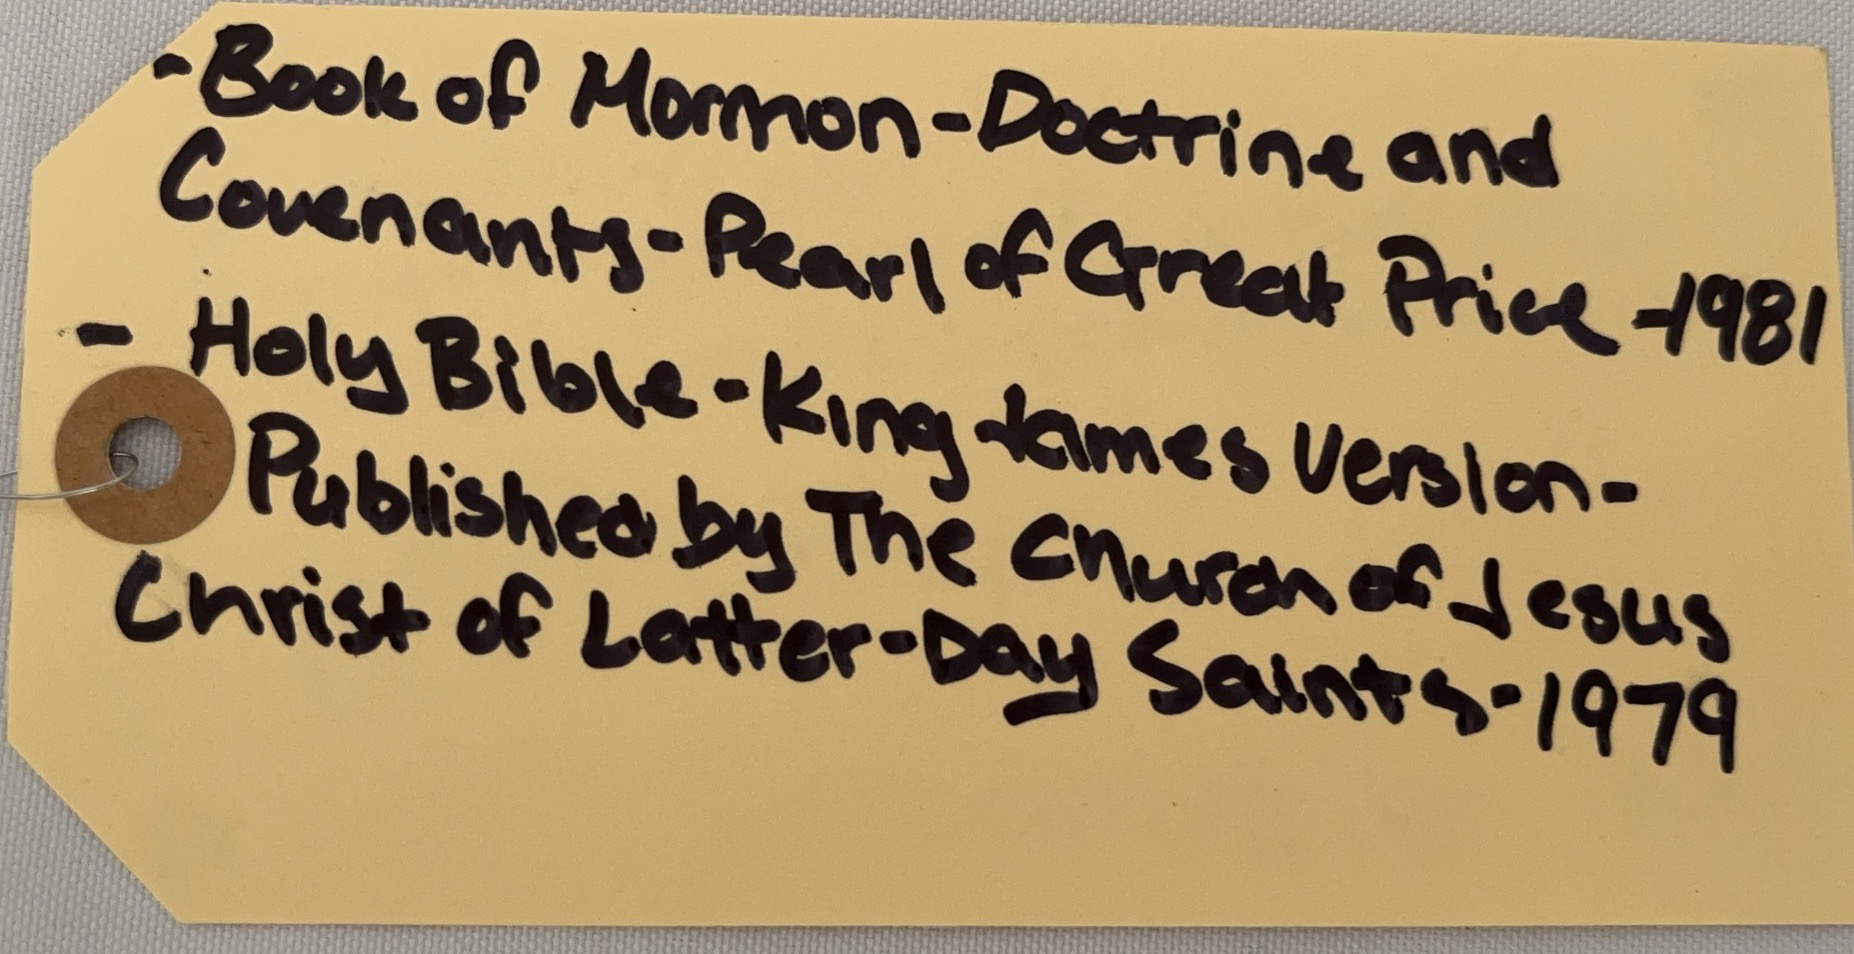 -Book of Mormon-Doctrine and
Covenants-Pearl of Great Price -1981
- Holy Bible-King James Version-
Published by The Church of Jesus
Christ of Latter-Day Saints-1979